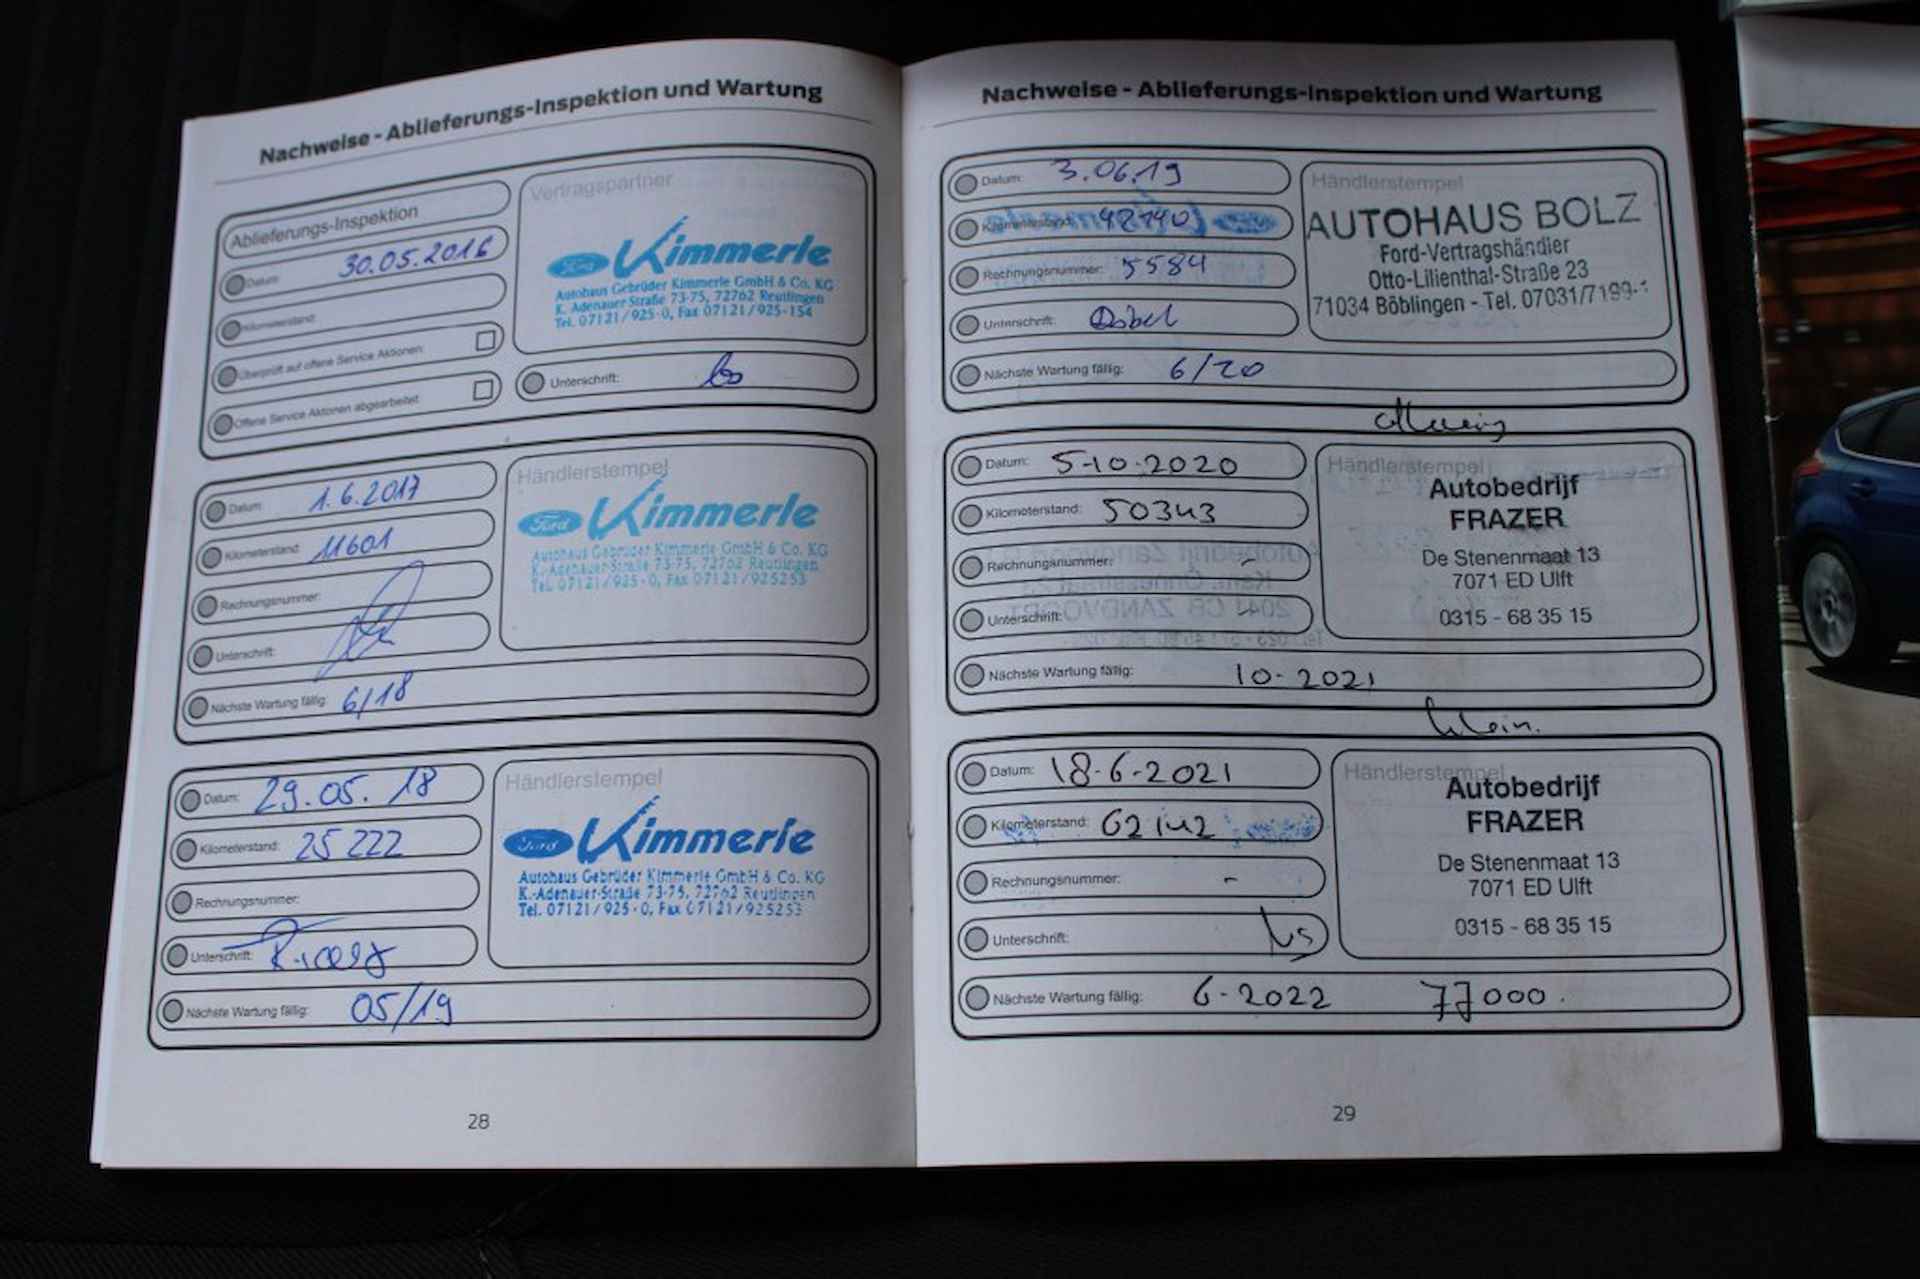 Nachweise - Ablieferungs-Inspektion und Wartung
Ablieferungs-Inspektion
Datum: 30.05.2016
Kilometerstand:
Überprüft auf offene Service Aktionen:
Offene Service Aktionen abgearbeitet:
Vertragspartner
Ford Kimmerle
Autohaus Gebrüder Kimmerle GmbH & Co. KG
K. Adenauer-Straße 73-75, 72762 Reutlingen
Tel. 07121/925-0, Fax 07121/925-154
Unterschrift:
Datum: 1.6.2017
Kilometerstand: 11601
Rechnungsnummer:
Unterschrift:
Nächste Wartung fällig: 6/18
Händlerstempel
Ford Kimmerle
Autohaus Gebrüder Kimmerle GmbH & Co. KG
K.-Adenauer-Straße 73-75, 72762 Reutlingen
Tel. 07121/925-0, Fax 07121/925253
Datum: 29.05.18
Kilometerstand: 25 222
Rechnungsnummer:
Unterschrift:
Nächste Wartung fällig: 05/19
Händlerstempel
Ford Kimmerle
Autohaus Gebrüder Kimmerle GmbH & Co. KG
K.-Adenauer-Straße 73-75, 72762 Reutlingen
Tel. 07121/925-0, Fax 07121/925253
28
Nachweise - Ablieferungs-Inspektion und Wartung
Datum: 3.06.19
Kilometerstand:
Rechnungsnummer: 5584
Unterschrift:
Nächste Wartung fällig: 6/20
Händlerstempel
AUTOHAUS BOLZ
Ford-Vertragshändler
Otto-Lilienthal-Straße 23
71034 Böblingen - Tel. 07031/7199-1
Datum: 5-10-2020
Kilometerstand: 50343
Rechnungsnummer: -
Unterschrift: -
Nächste Wartung fällig: 10-2021
Händlerstempel
Autobedrijf
FRAZER
De Stenenmaat 13
7071 ED Ulft
0315 - 68 35 15
klein.
Datum: 18-6-2021
Kilometerstand: 62142
Rechnungsnummer: -
Unterschrift:
Nächste Wartung fällig: 6-2022 77000.
Händlerstempel
Autobedrijf
FRAZER
De Stenenmaat 13
7071 ED Ulft
0315 - 68 35 15
29